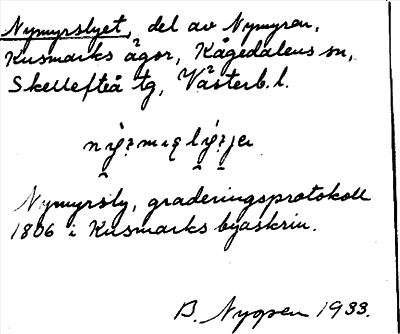 Nymyrslyet, del av Nymyran,
Kusmarks ägor, Kågedalens sn,
Skellefteå tg, Västerb. l.
Nymyrsly, graderingsprotokoll
1806 i Kusmarks byaskrin.
B. Nygren 1933.